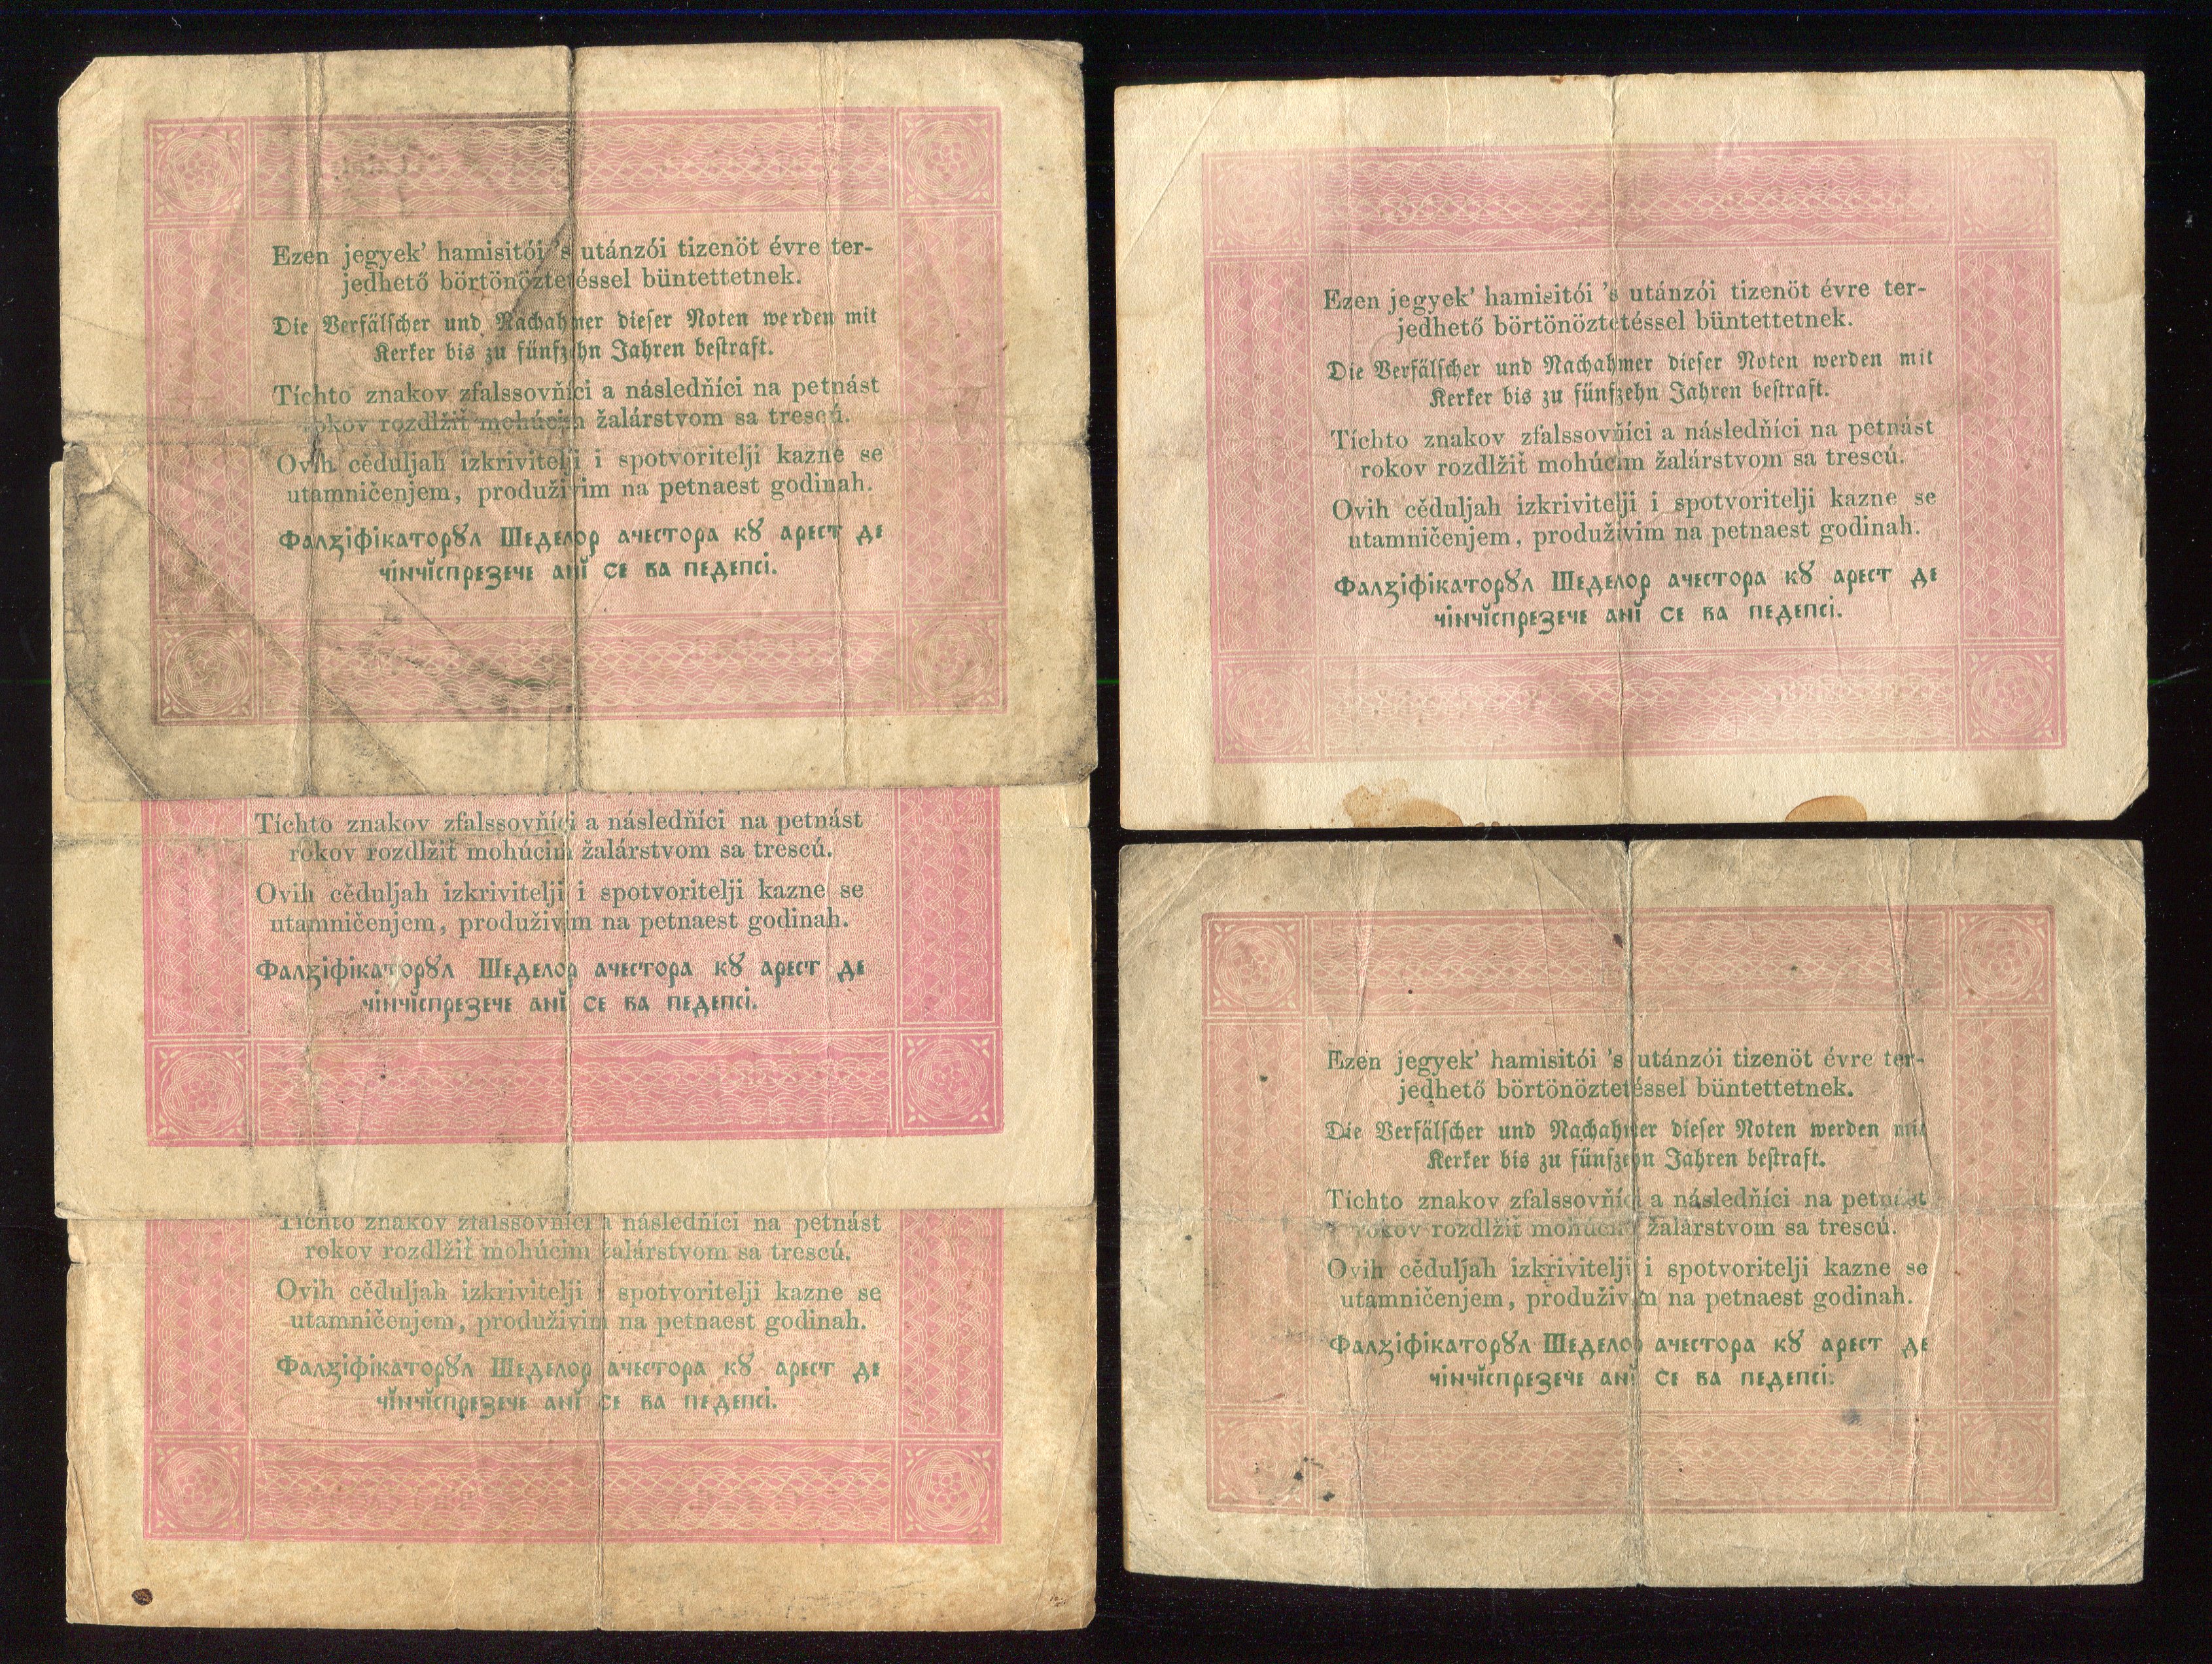 Ezen jegyek’ hamisitói ’s utánzói tizenöt évre ter-
jedhető börtönöztetéssel büntettetnek.
Die Verfälscher und Nachahmer dieser Noten werden mit
Kerker bis zu fünfzehn Jahren bestraft.
Tíchto znakov zfalssovňíci a následňíci na petnást
rokov rozdlžiť mohúcim žalárstvom sa trescú.
Ovih cěduljah izkrivitelji i spotvoritelji kazne se
utamničenjem, produživim na petnaest godinah.
Фалꙁіфікаторꙋл Шеделор ачестора кꙋ арест де
чінчĭспрезече анĭ се ва педепсі.
Tíchto znakov zfalssovňíci a následňíci na petnást
rokov rozdlžiť mohúcim žalárstvom sa trescú.
Ovih cěduljah izkrivitelji i spotvoritelji kazne se
utamničenjem, produživim na petnaest godinah.
Фалꙁіфікаторꙋл Шеделор ачестора кꙋ арест де
чінчĭспрезече анĭ се ва педепсі.
Tíchto znakov zfalssovňíci a následňíci na petnást
rokov rozdlžiť mohúcim žalárstvom sa trescú.
Ovih cěduljah izkrivitelji i spotvoritelji kazne se
utamničenjem, produživim na petnaest godinah.
Фалꙁіфікаторꙋл Шеделор ачестора кꙋ арест де
чінчĭспрезече анĭ се ва педепсі.
Ezen jegyek’ hamisitói ’s utánzói tizenöt évre ter-
jedhető börtönöztetéssel büntettetnek.
Die Verfälscher und Nachahmer dieser Noten werden mit
Kerker bis zu fünfzehn Jahren bestraft.
Tíchto znakov zfalssovňíci a následňíci na petnást
rokov rozdlžiť mohúcim žalárstvom sa trescú.
Ovih cěduljah izkrivitelji i spotvoritelji kazne se
utamničenjem, produživim na petnaest godinah.
Фалꙁіфікаторꙋл Шеделор ачестора кꙋ арест де
чінчĭспрезече анĭ се ва педепсі.
Ezen jegyek’ hamisitói ’s utánzói tizenöt évre ter-
jedhető börtönöztetéssel büntettetnek.
Die Verfälscher und Nachahmer dieser Noten werden mit
Kerker bis zu fünfzehn Jahren bestraft.
Tíchto znakov zfalssovňíci a následňíci na petnást
rokov rozdlžiť mohúcim žalárstvom sa trescú.
Ovih cěduljah izkrivitelji i spotvoritelji kazne se
utamničenjem, produživim na petnaest godinah.
Фалꙁіфікаторꙋл Шеделор ачестора кꙋ арест де
чінчĭспрезече анĭ се ва педепсі.